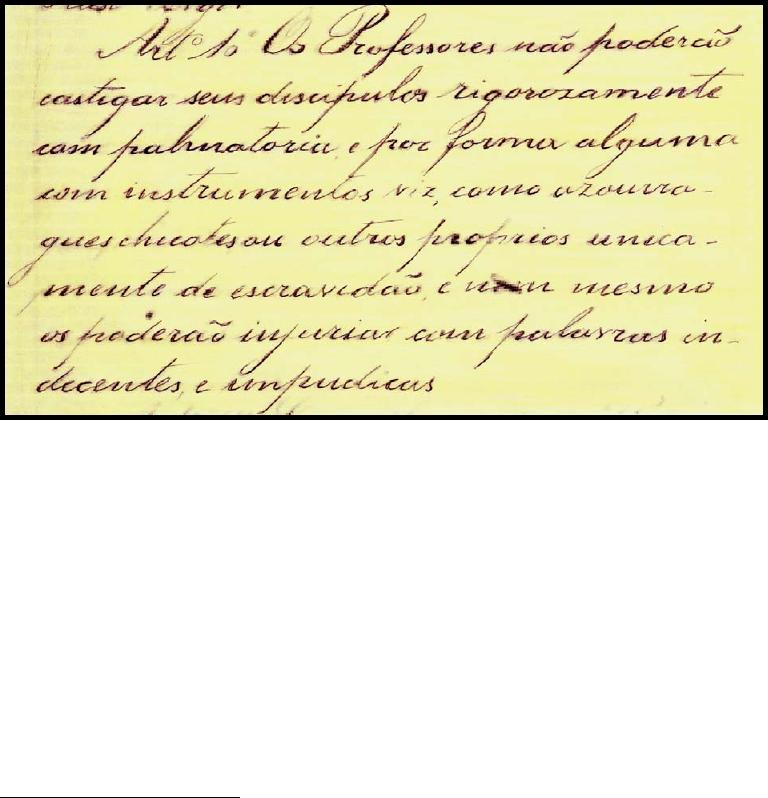 Artº 1º Os Professores não poderão
castigar seus discipulos rigorozamente
com palmatoria, e por forma alguma
com instrumentos viz, como azourra-
gues chicotes ou outros proprios unica-
mente de escravidão, e nem mesmo
os poderão injuriar com palavras in-
decentes, e impudicas